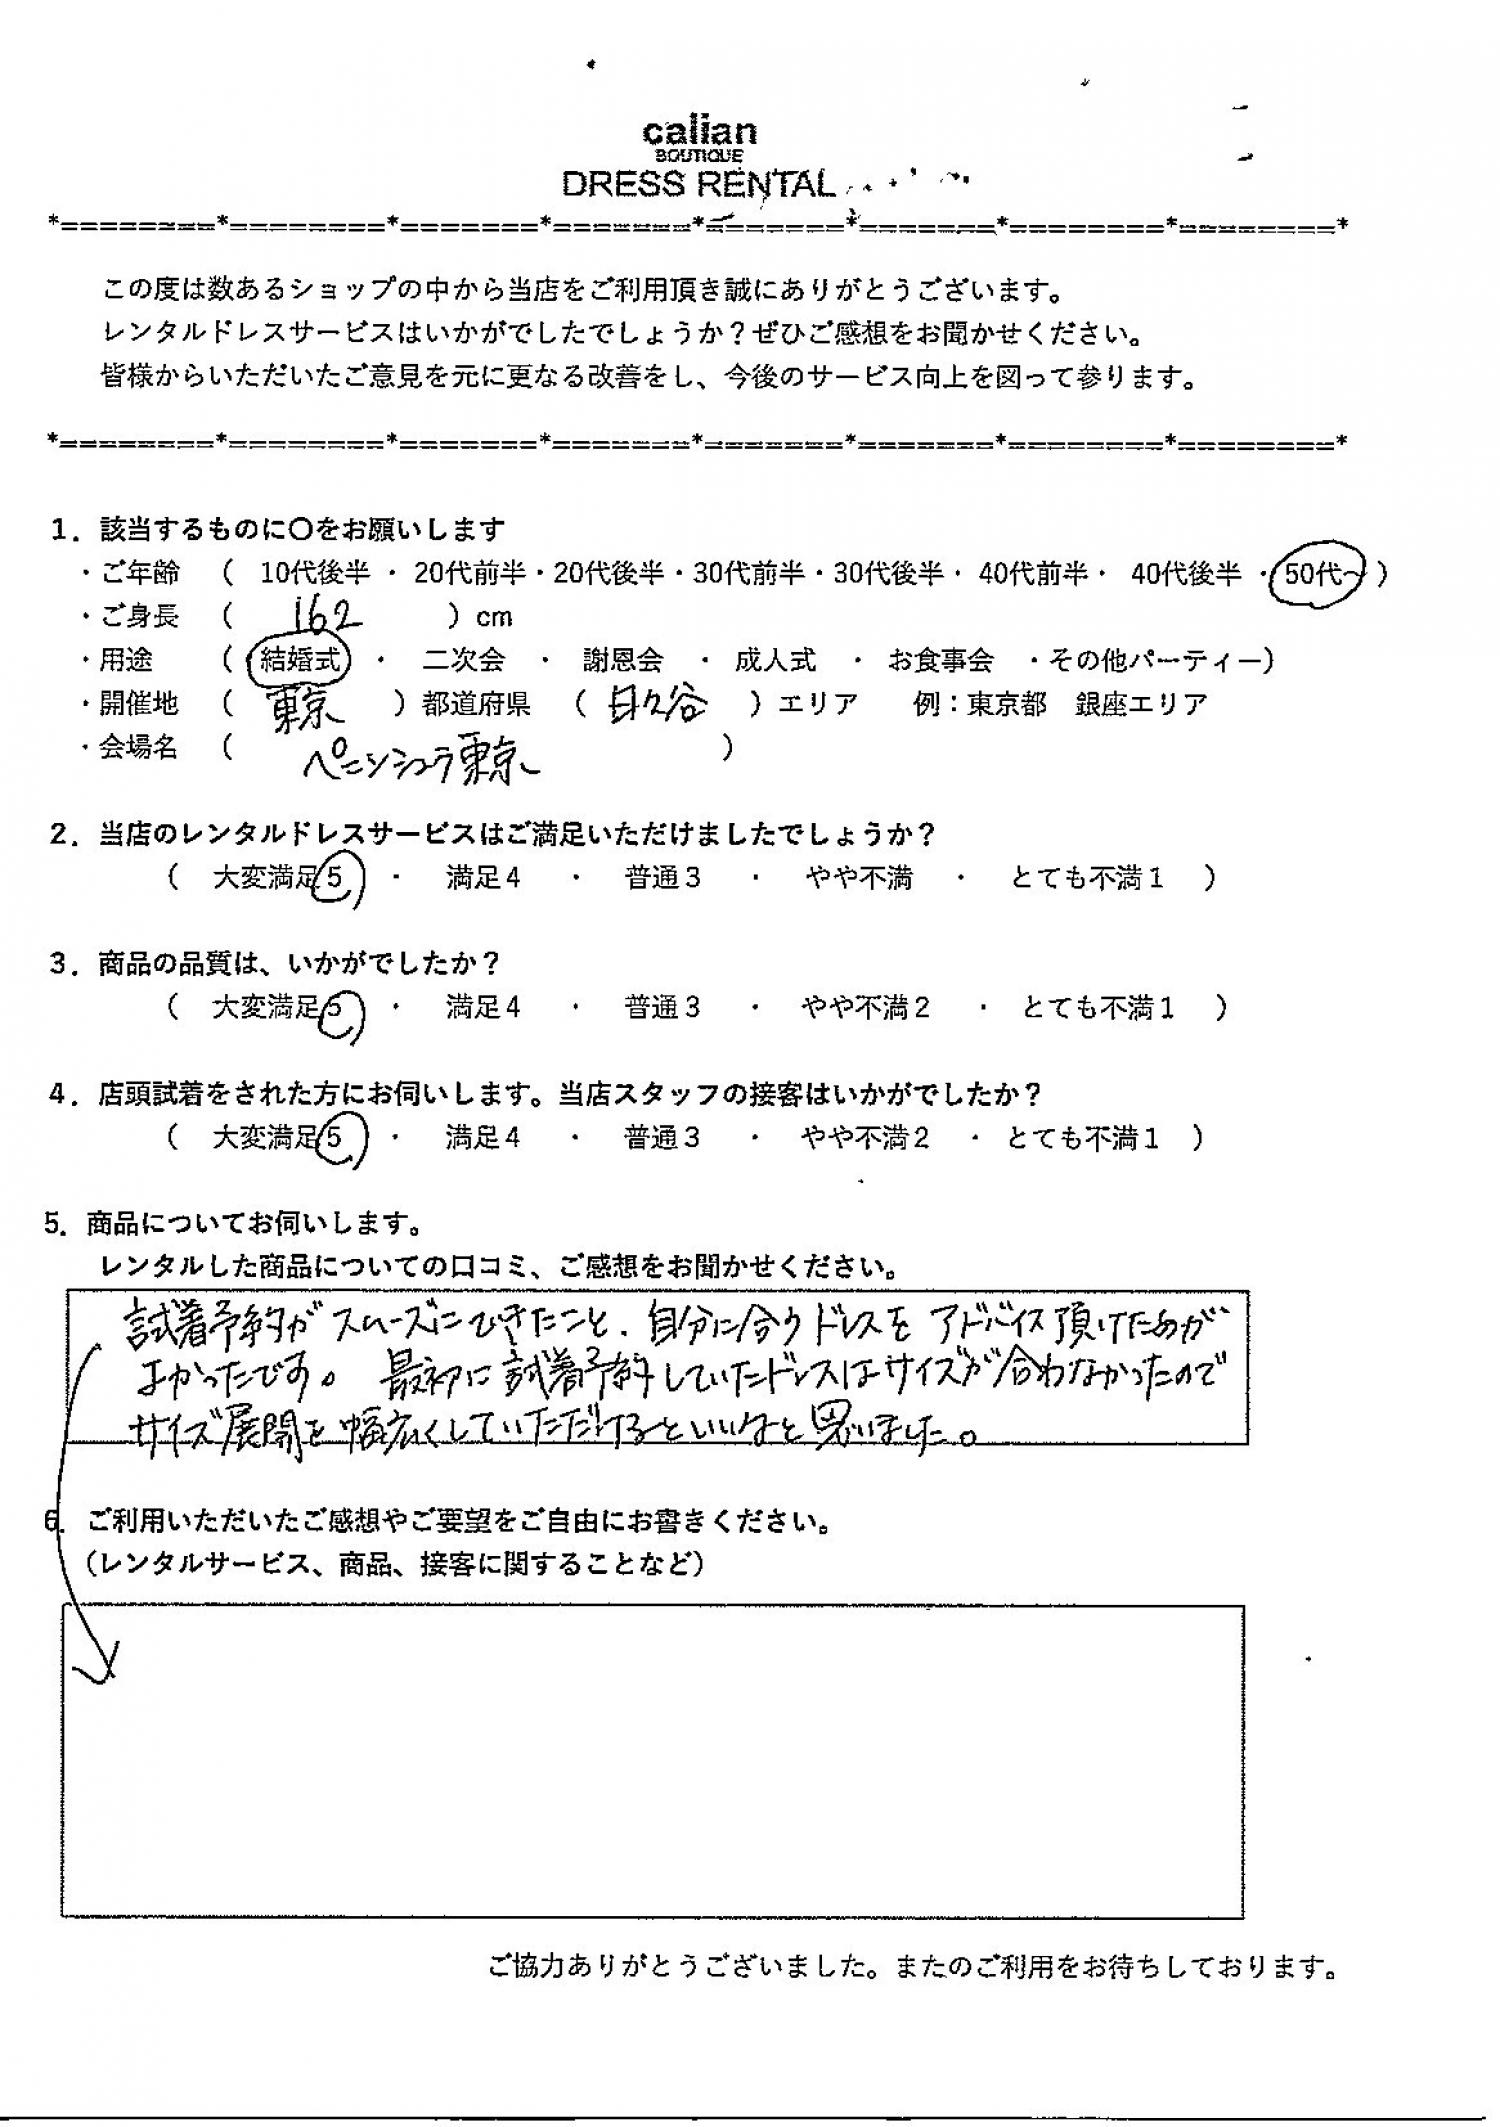 calian
BOUTIQUE
DRESS RENTAL
*========*========*=======*=======*=======*=======*========*========*
この度は数あるショップの中から当店をご利用頂き誠にありがとうございます。
レンタルドレスサービスはいかがでしたでしょうか？ぜひご感想をお聞かせください。
皆様からいただいたご意見を元に更なる改善をし、今後のサービス向上を図って参ります。
*========*========*=======*=======*=======*=======*========*========*
1．該当するものに〇をお願いします
・ご年齢 （ 10代後半 ・ 20代前半・20代後半・30代前半・30代後半・ 40代前半・ 40代後半 ・50代～）
・ご身長 （ 162 ）cm
・用途 （ 結婚式 ・ 二次会 ・ 謝恩会 ・ 成人式 ・ お食事会 ・その他パーティー）
・開催地 （ 東京 ）都道府県 （ 日比谷 ）エリア 例：東京都 銀座エリア
・会場名 （ ペニンシュラ東京 ）
2．当店のレンタルドレスサービスはご満足いただけましたでしょうか？
（ 大変満足5 ・ 満足4 ・ 普通3 ・ やや不満 ・ とても不満1 ）
3．商品の品質は、いかがでしたか？
（ 大変満足5 ・ 満足4 ・ 普通3 ・ やや不満2 ・ とても不満1 ）
4．店頭試着をされた方にお伺いします。当店スタッフの接客はいかがでしたか？
（ 大変満足5 ・ 満足4 ・ 普通3 ・ やや不満2 ・ とても不満1 ）
5．商品についてお伺いします。
レンタルした商品についての口コミ、ご感想をお聞かせください。
試着予約がスムーズにできたこと、自分に合うドレスをアドバイス頂けたのが、
よかったです。最初に試着予約していたドレスはサイズが合わなかったので
サイズ展開を幅広くしていただけるといいなと思いました。
6．ご利用いただいたご感想やご要望をご自由にお書きください。
（レンタルサービス、商品、接客に関することなど）
ご協力ありがとうございました。またのご利用をお待ちしております。